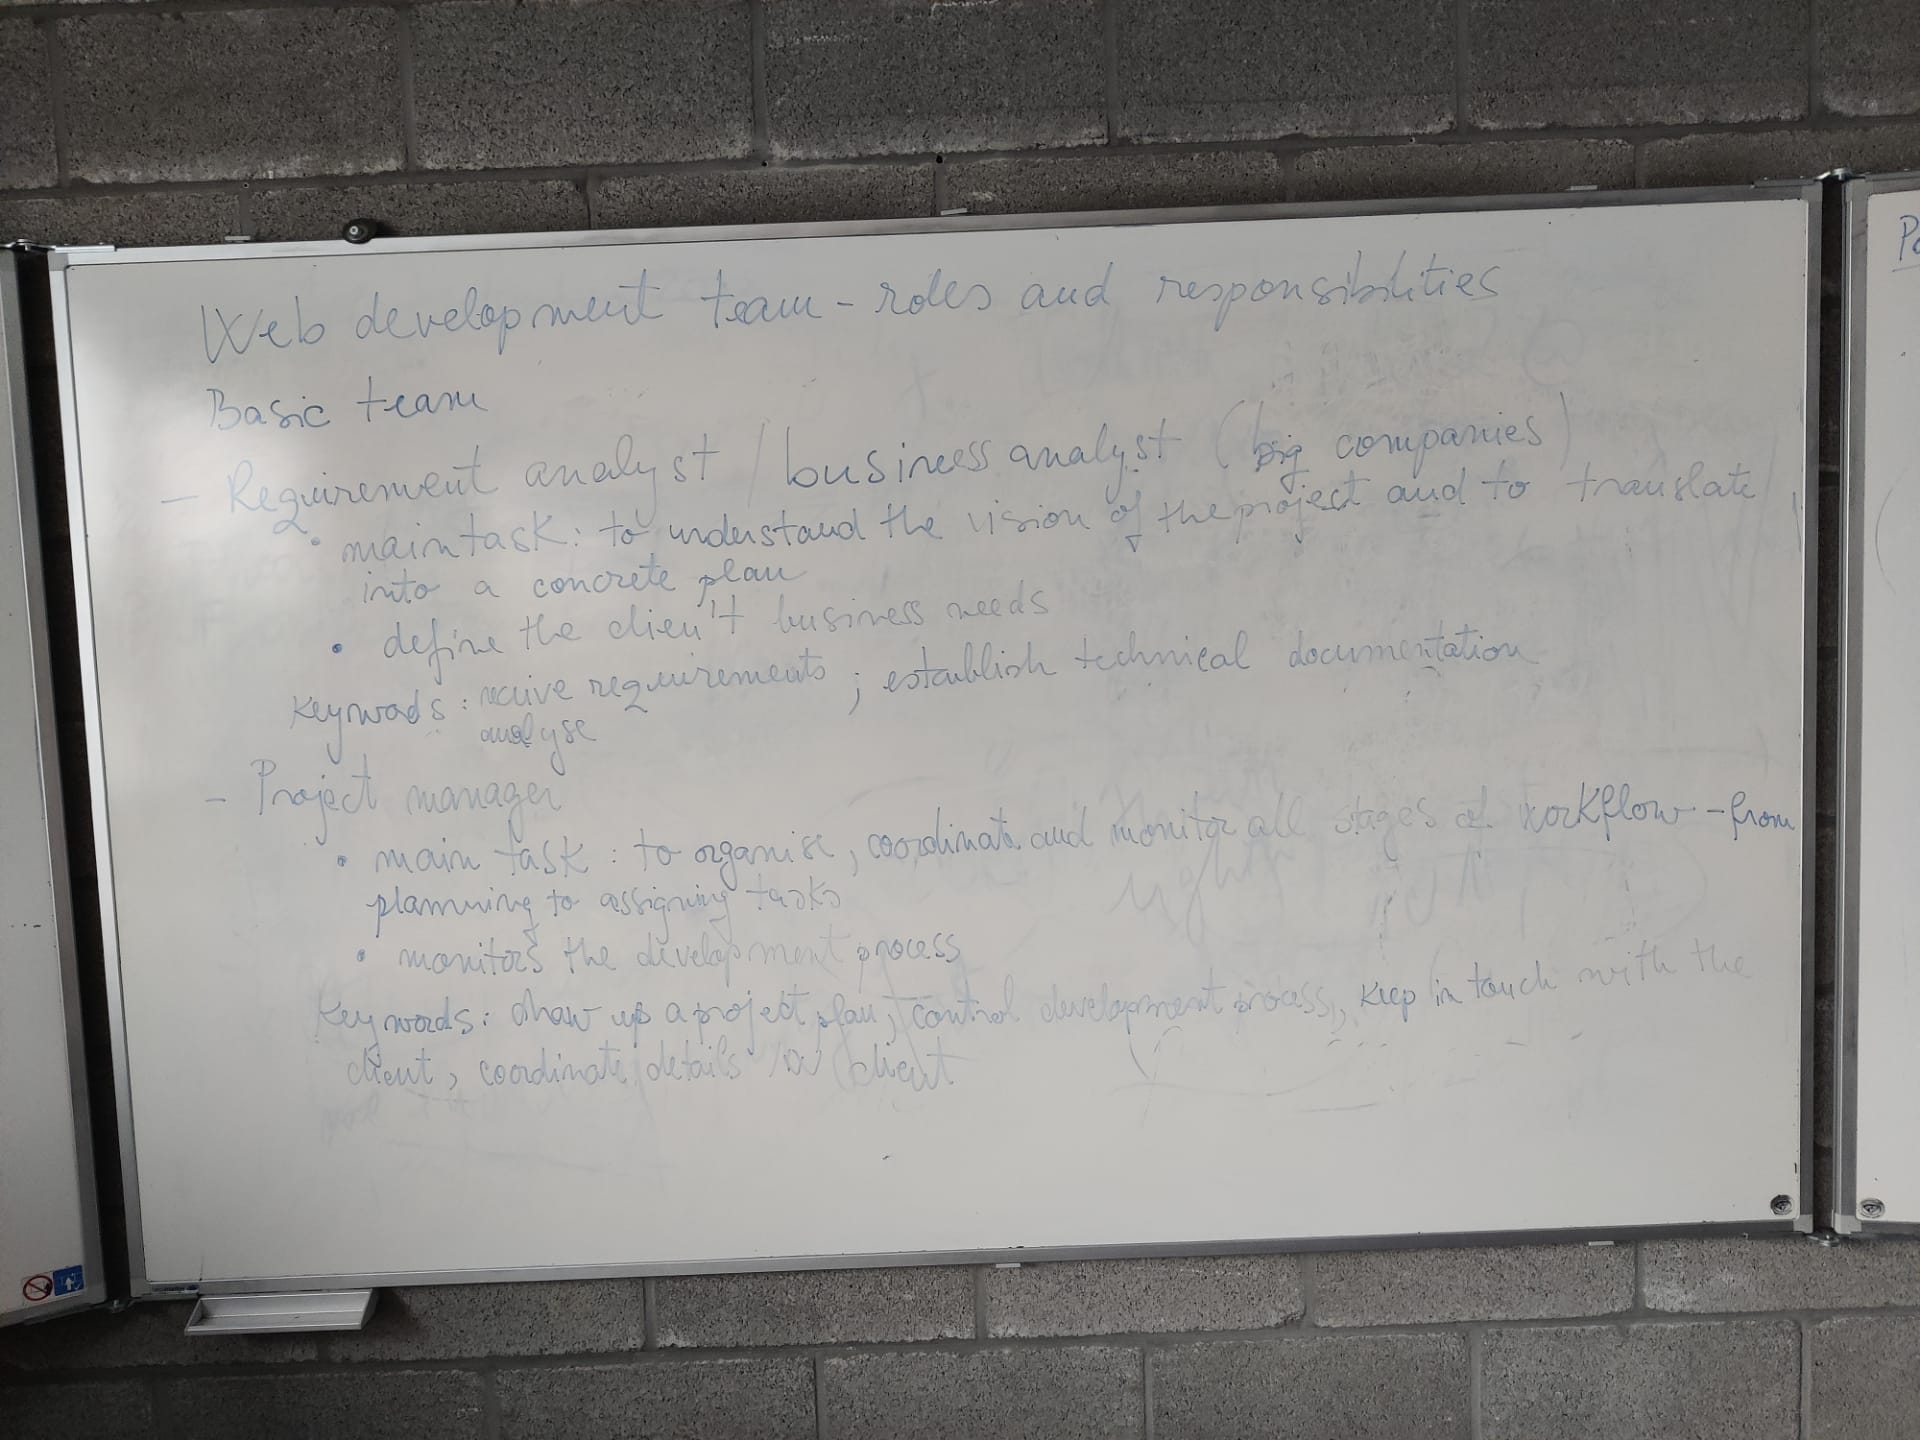 Web development team - roles and responsibilities
Basic team
- Requirement analyst / business analyst (big companies)
• main task: to understand the vision of the project and to translate
into a concrete plan
• define the clien't business needs
Keywords: receive requirements ; establish technical documentation
analyse
- Project manager
• main task : to organise, coordinate and monitor all stages of workflow - from
planning to assigning tasks
• monitors the development process
Keywords: draw up a project plan, control development process, keep in touch with the
client, coordinate details w client